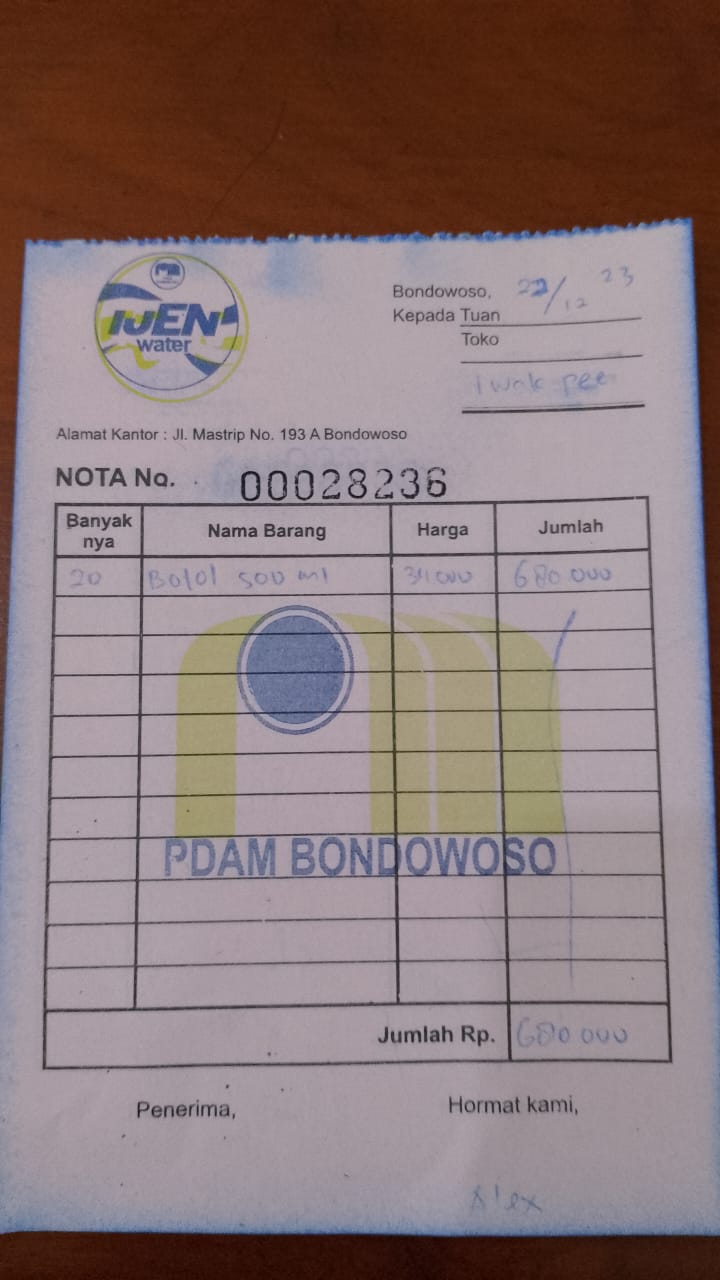 IJEN
water
Bondowoso, 22/12 23
Kepada Tuan
Toko
Iwak pee
Alamat Kantor : Jl. Mastrip No. 193 A Bondowoso
NOTA No. 00028236
Banyak nya Nama Barang Harga Jumlah
20 Botol 500 ml 34000 680.000
PDAM BONDOWOSO
Jumlah Rp. 680.000
Penerima, Hormat kami,
Alex